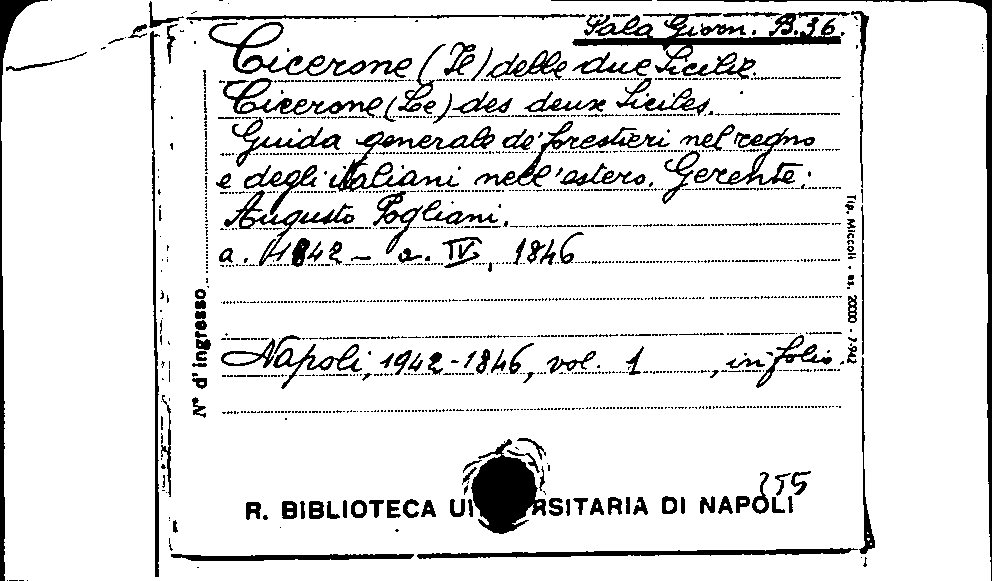 Sala Giorn. B.36.
Cicerone (Il) delle due Sicilie.
Cicerone (Le) des deux Siciles.
Guida generale de' forestieri nel regno
e degli italiani nell'estero. Gerente:
Augusto Pogliani.
a. 1842 - a. IV, 1846
Napoli, 1942-1846, vol. 1 , in folio.
N° d'ingresso
Tip. Miccoli - es. 20000 - 7-942
255
R. BIBLIOTECA UNIVERSITARIA DI NAPOLI